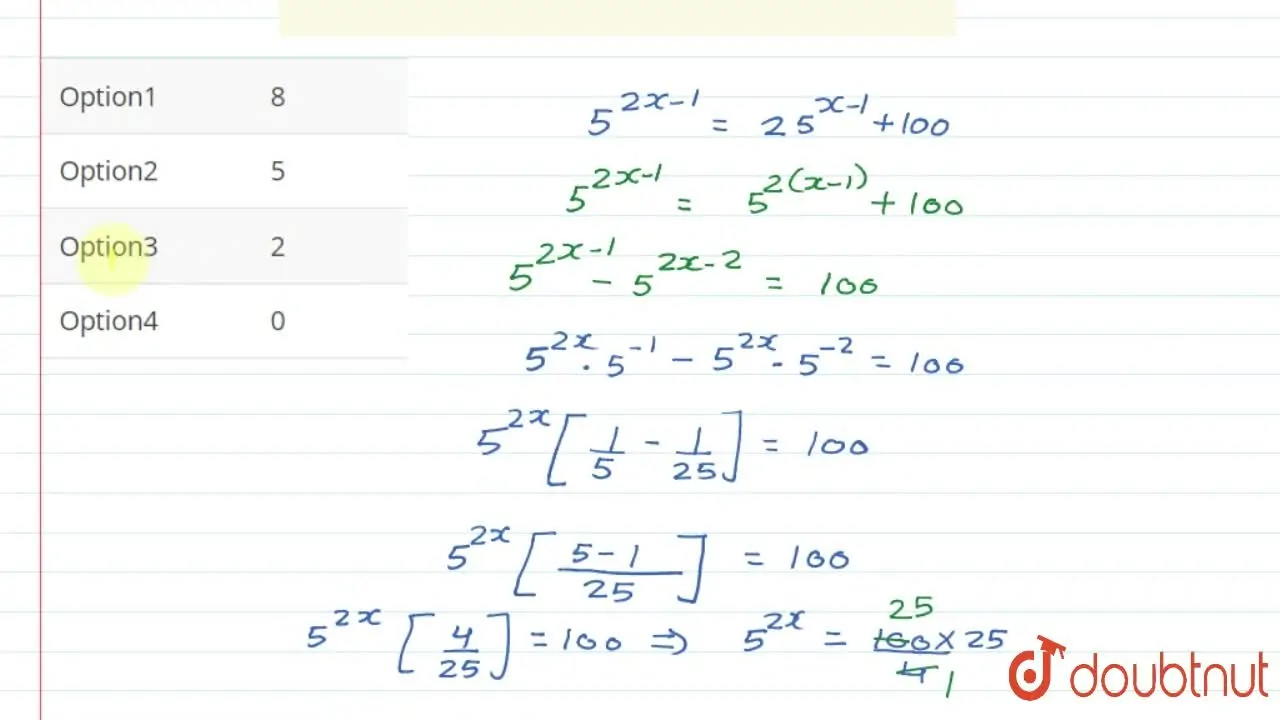 Option1 8
Option2 5
Option3 2
Option4 0
5^{2x-1} = 25^{x-1} + 100
5^{2x-1} = 5^{2(x-1)} + 100
5^{2x-1} - 5^{2x-2} = 100
5^{2x} · 5^{-1} - 5^{2x} · 5^{-2} = 100
5^{2x} [1/5 - 1/25] = 100
5^{2x} [(5-1)/25] = 100
25
5^{2x} [4/25] = 100 ⇒ 5^{2x} = 100 × 25 / 4
1
doubtnut